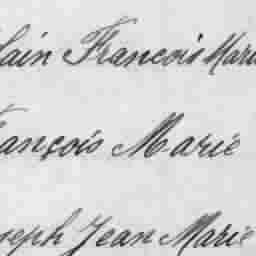 lain Francois Marie
ançois Marie
seph Jean Marie